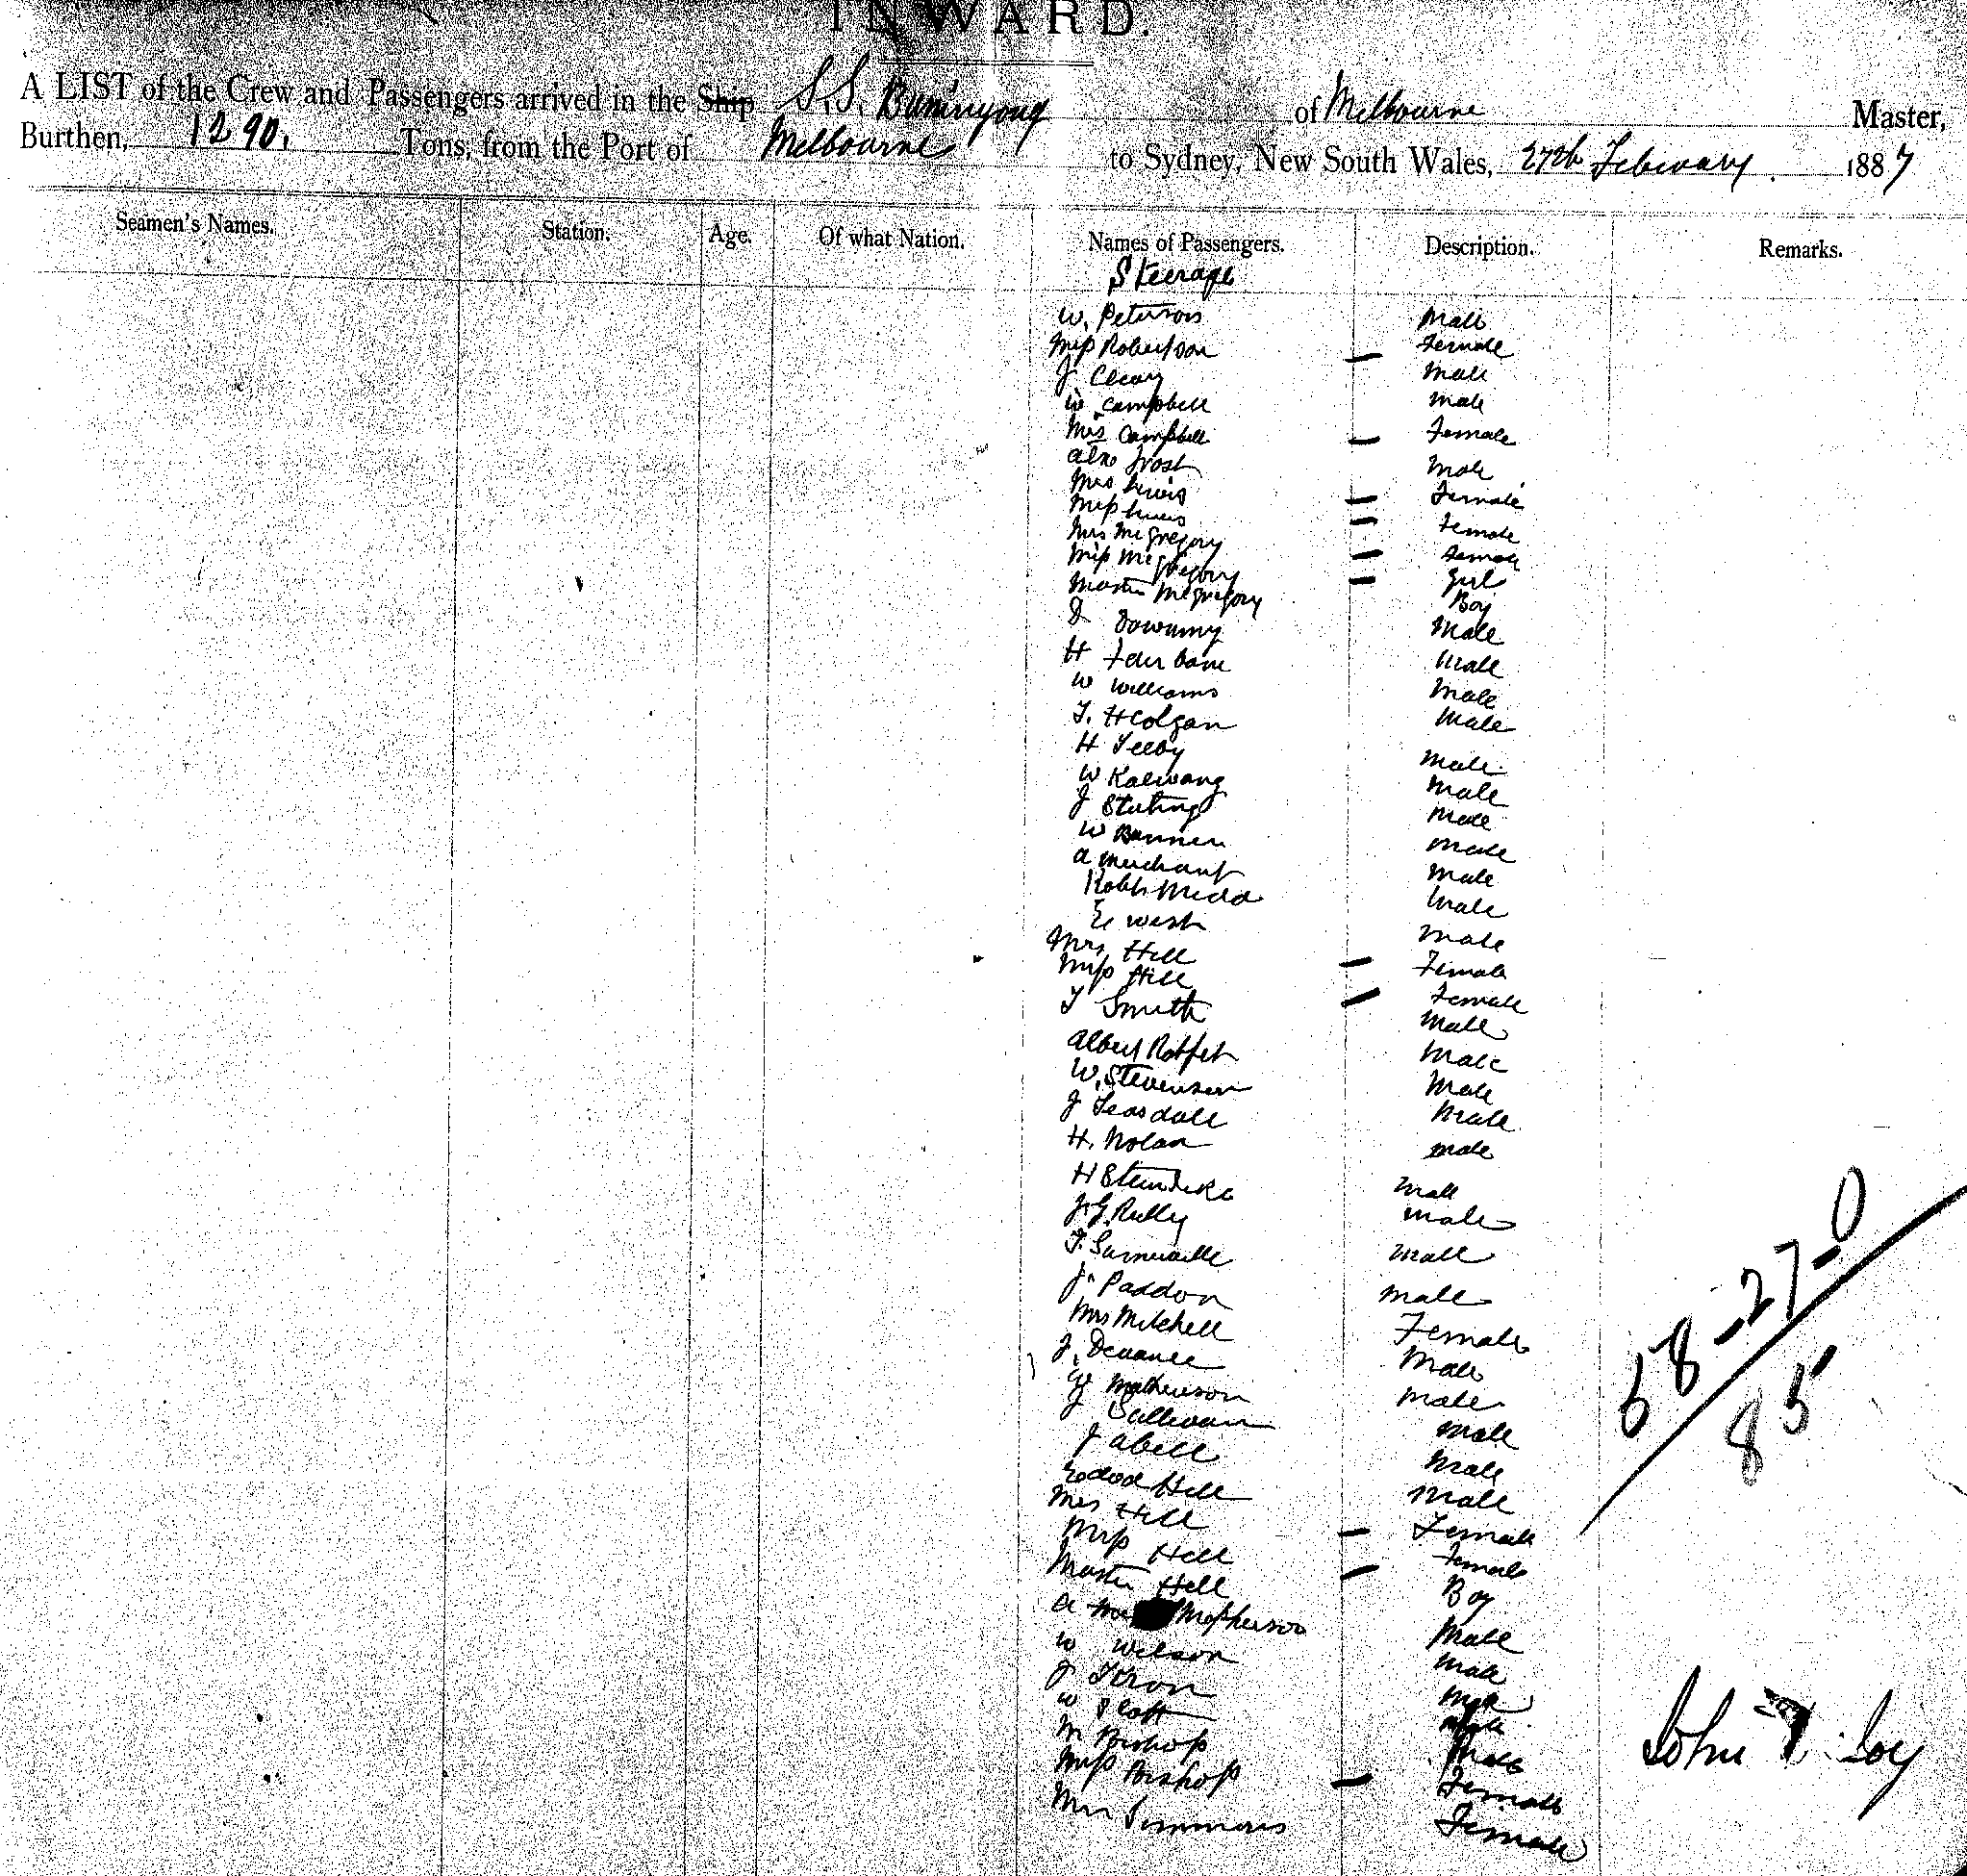 INWARD.
A LIST of the Crew and Passengers arrived in the Ship S.S. Buninyong of Melbourne Master,
Burthen, 1290, Tons, from the Port of Melbourne to Sydney, New South Wales, 27th February. 1887
Seamen's Names. Station. Age. Of what Nation. Names of Passengers. Description. Remarks.
Steerage
W. Peterson Male
Miss Robertson — Female
J Cleary Male
W Campbell Male
Mrs Campbell — Female
Frost Male
Mrs Lewis — Female
Miss Lewis — Female
Mrs McGregory — Female
Miss McGregory — Girl
Master McGregory Boy
Male
H Male
W Williams Male
T. H Colgan Male
H Male
W Male
J Male
W Male
A Merchant Male
Robt Male
E West Male
Mrs Hill — Female
Miss Hill — Female
T Smith Male
Albert Male
W. Stevenson Male
J Teasdale Male
H. Nolan Male
H Male
J. G. Male
Male
J. Paddon Male
Mrs Mitchell Female
J. Devanee Male
Matherson Male
J Sullivan Male
J Abell Male
Hill Male
Mrs Hill — Female
Miss Hill — Female
Master Hill Boy
A McPherson Male
W Wilson Male
J Male
W Scott Male
M Bishop Male
Miss Bishop — Female
Mrs Simmons Female
58-27-0
85
John